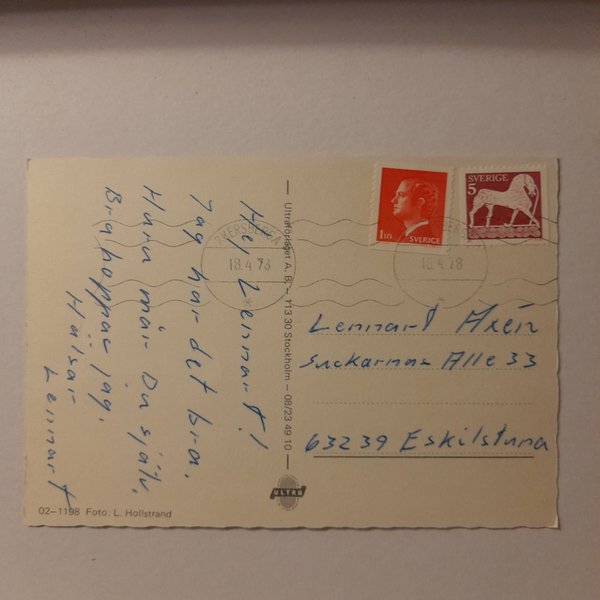 Hej Lennart!
Jag har det bra.
Hura mår Du själv.
Bra hoppac jag.
Hälsar
Lennart
Ultraförlaget A. B. – 113 30 Stockholm – 08/23 49 10
ULTRA
02–1198 Foto: L. Hollstrand
ÅKERSBERGA
18.4.78
1.10
SVERIGE
SVERIGE
5
18.4.78
Lennart Axén
Suckarnas Alle 33
63239 Eskilstuna